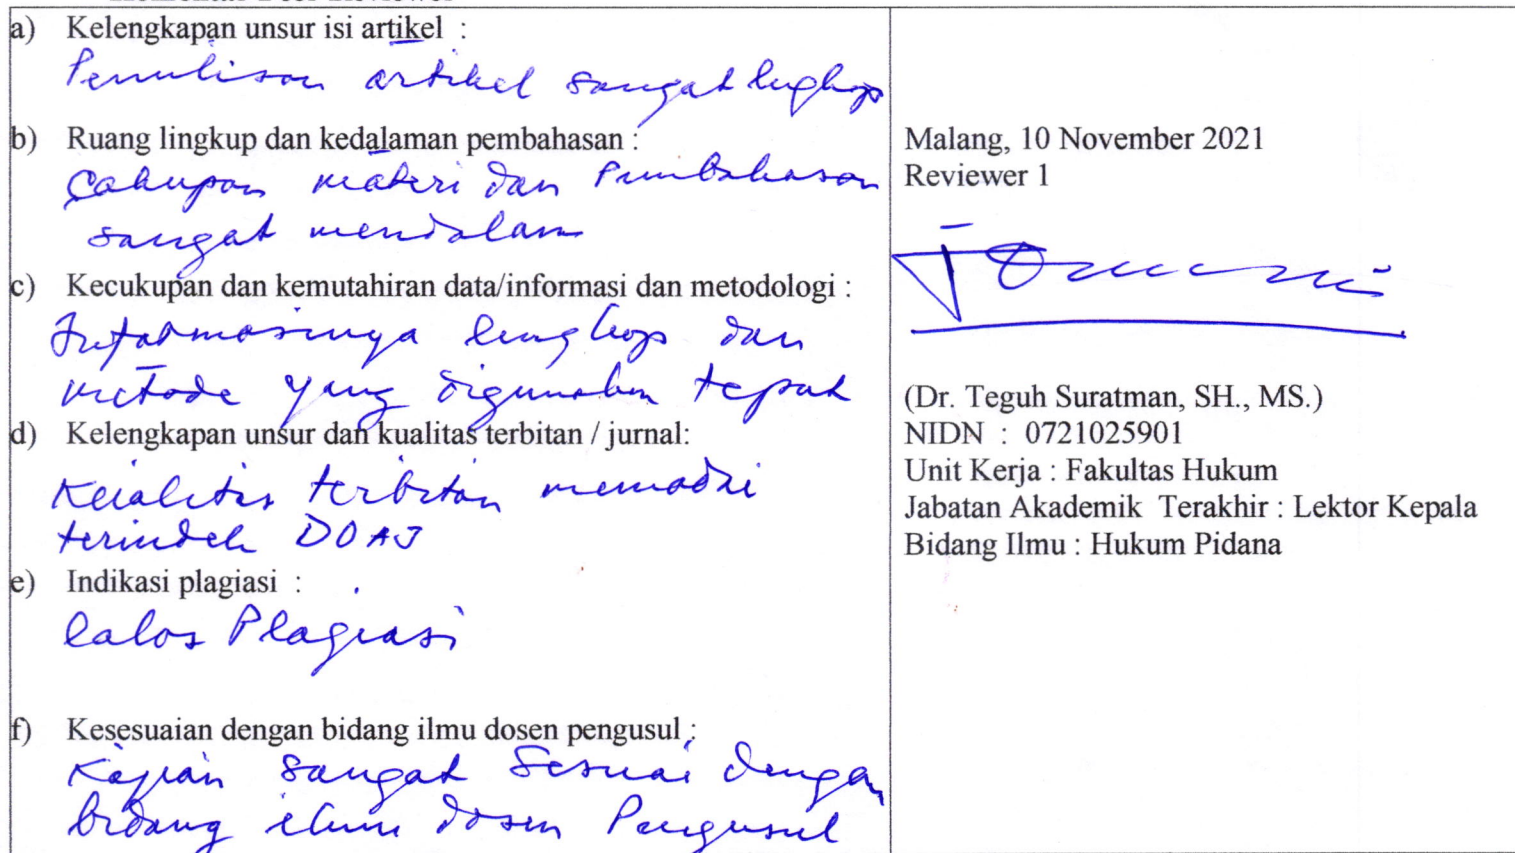 a) Kelengkapan unsur isi artikel :
Penulisan artikel sangat lengkap
b) Ruang lingkup dan kedalaman pembahasan :
Cakupan materi dan Pembahasan
sangat mendalam
c) Kecukupan dan kemutahiran data/informasi dan metodologi :
Informasinya lengkap dan
metode yang digunakan tepat
d) Kelengkapan unsur dan kualitas terbitan / jurnal:
Kualitas terbitan memadai
terindek DOAJ
e) Indikasi plagiasi :
lolos Plagiasi
f) Kesesuaian dengan bidang ilmu dosen pengusul :
Kajian sangat Sesuai dengan
bidang ilmu dosen Pengusul
Malang, 10 November 2021
Reviewer 1
(Dr. Teguh Suratman, SH., MS.)
NIDN : 0721025901
Unit Kerja : Fakultas Hukum
Jabatan Akademik Terakhir : Lektor Kepala
Bidang Ilmu : Hukum Pidana